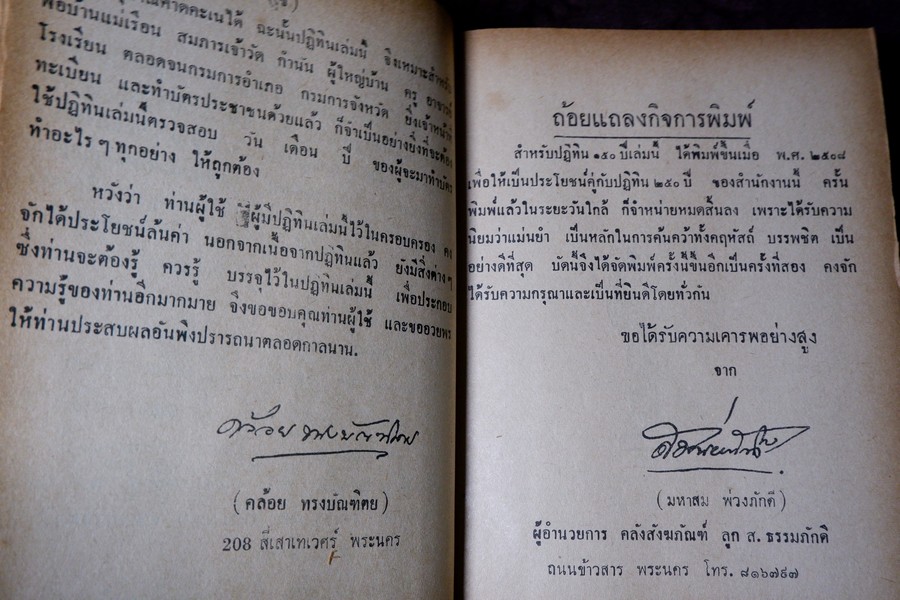 ณคาดคะเนได้ ฉะนั้นปฏิทินเล่มนี้ จึงเหมาะสำหรับ
พ่อบ้านแม่เรือน สมภารเจ้าวัด กำนัน ผู้ใหญ่บ้าน ครู อาจารย์
โรงเรียน ตลอดจนกรมการอำเภอ กรมการจังหวัด ยิ่งเจ้าหน้าที่
ทะเบียน และทำบัตรประชาชนด้วยแล้ว ก็จำเป็นอย่างยิ่งที่จะต้อง
ใช้ปฏิทินเล่มนี้ตรวจสอบ วัน เดือน ปี ของผู้จะมาทำบัตร
ทำอะไร ๆ ทุกอย่าง ให้ถูกต้อง
หวังว่า ท่านผู้ใช้ ผู้มีปฏิทินเล่มนี้ไว้ในครอบครอง คง
จักได้ประโยชน์ล้นค่า นอกจากเนื้อจากปฏิทินแล้ว ยังมีสิ่งต่าง ๆ
ซึ่งท่านจะต้องรู้ ควรรู้ บรรจุไว้ในปฏิทินเล่มนี้ เพื่อประกอบ
ความรู้ของท่านอีกมากมาย จึงขอขอบคุณท่านผู้ใช้ และขออวยพร
ให้ท่านประสบผลอันพึงปรารถนาตลอดกาลนาน.
คล้อย ทรงบัณฑิตย
(คล้อย ทรงบัณฑิตย)
208 สี่เสาเทเวศร์ พระนคร
ถ้อยแถลงกิจการพิมพ์
สำหรับปฏิทิน ๑๕๐ ปีเล่มนี้ ได้พิมพ์ขึ้นเมื่อ พ.ศ. ๒๕๐๘
เพื่อให้เป็นประโยชน์คู่กับปฏิทิน ๒๕๐ ปี ของสำนักงานนี้ ครั้น
พิมพ์แล้วในระยะวันใกล้ ก็จำหน่ายหมดสิ้นลง เพราะได้รับความ
นิยมว่าแม่นยำ เป็นหลักในการค้นคว้าทั้งคฤหัสถ์ บรรพชิต เป็น
อย่างดีที่สุด บัดนี้จึงได้จัดพิมพ์ครั้งนี้ขึ้นอีกเป็นครั้งที่สอง คงจัก
ได้รับความกรุณาและเป็นที่ยินดีโดยทั่วกัน
ขอได้รับความเคารพอย่างสูง
จาก
(มหาสม พ่วงภักดี)
ผู้อำนวยการ คลังสังฆภัณฑ์ ลูก ส. ธรรมภักดี
ถนนข้าวสาร พระนคร โทร. ๘๑๖๗๙๗